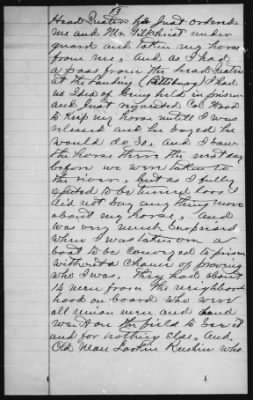 13
Head Quarters he Just ordered
me and Mr Gilchrist under
guard and taken my horse
from me, and as I had
a pass from the head Quarters
at the Landing (Pittsburg) I had
no Idea of being held in prison
and Just requested Col Hood
to Keep my horse untill I was
released and he
would do So, and I saw
the horse there the next day
before we were taken to
the river. But as I fully
expected to be turned loos I
did not Say any thing more
about my horse, And
was very much Surprised
when I was taken on a
boat to be conveyed to prison
without a chance of proving
who I was. They had about
14 men from the neighbor
hood on board who were
all union men and had
went on the field to See it
and for nothing else, And
Old Man Larkin Rushin who